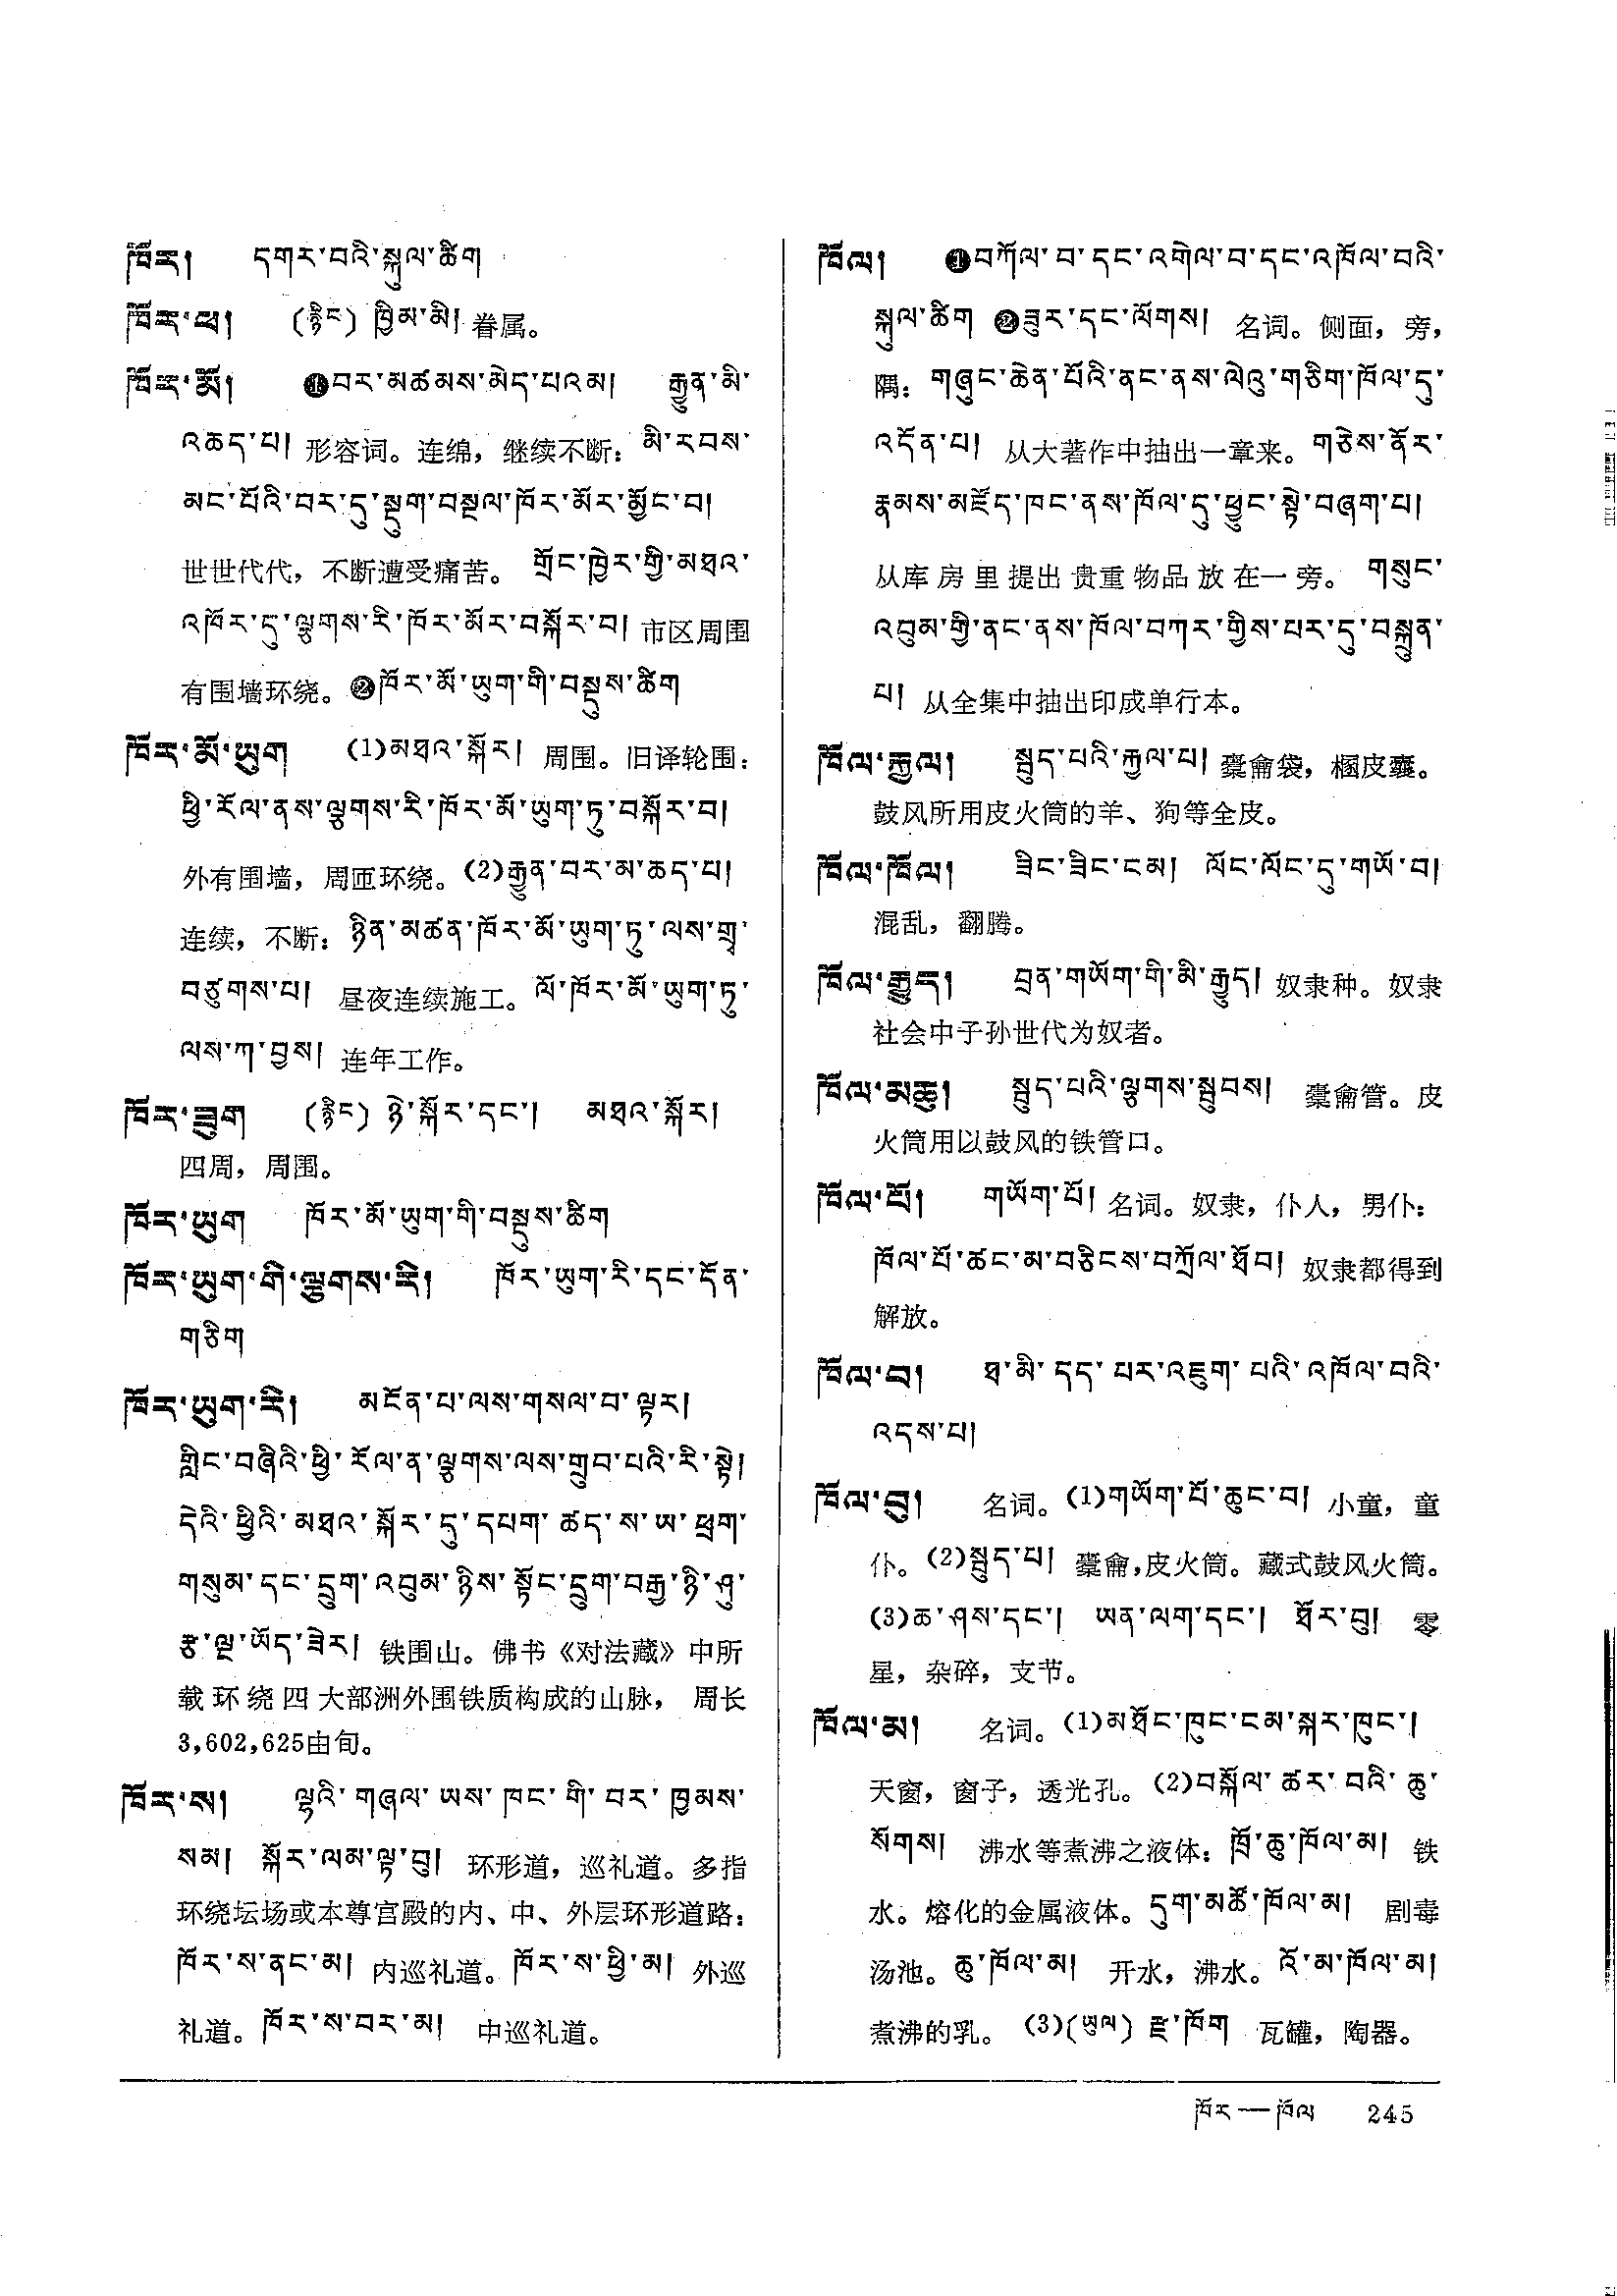 ཁོར། དགར་བའི་སྐུལ་ཚིག
ཁོར་ཕ། (རྙིང) ཁྱིམ་མི། 眷属。
ཁོར་མོ། ❶བར་མཚམས་མེད་པའམ། རྒྱུན་མི་
འཆད་པ། 形容词。连绵，继续不断：མི་རབས་
མང་པོའི་བར་དུ་སྡུག་བསྔལ་ཁོར་མོར་མྱོང་བ།
世世代代，不断遭受痛苦。གྲོང་ཁྱེར་གྱི་མཐའ་
འཁོར་དུ་ལྕགས་རི་ཁོར་མོར་བསྐོར་བ། 市区周围
有围墙环绕。❷ཁོར་མོ་ཡུག་གི་བསྡུས་ཚིག
ཁོར་མོ་ཡུག (1)མཐའ་སྐོར། 周围。旧译轮围：
ཕྱི་རོལ་ནས་ལྕགས་རི་ཁོར་མོ་ཡུག་ཏུ་བསྐོར་བ།
外有围墙，周匝环绕。(2)རྒྱུན་བར་མ་ཆད་པ།
连续，不断：ཉིན་མཚན་ཁོར་མོ་ཡུག་ཏུ་ལས་གྲྭ་
བཙུགས་པ། 昼夜连续施工。ལོ་ཁོར་མོ་ཡུག་ཏུ་
ལས་ཀ་བྱས། 连年工作。
ཁོར་ཟླུག (རྙིང) ཉེ་སྐོར་དང་། མཐའ་སྐོར།
四周，周围。
ཁོར་ཡུག ཁོར་མོ་ཡུག་གི་བསྡུས་ཚིག
ཁོར་ཡུག་གི་ལྕགས་རི། ཁོར་ཡུག་རི་དང་དོན་
གཅིག
ཁོར་ཡུག་རི། མངོན་པ་ལས་གསལ་བ་ལྟར།
གླིང་བཞིའི་ཕྱི་རོལ་ན་ལྕགས་ལས་གྲུབ་པའི་རི་སྟེ།
དེའི་ཕྱིའི་མཐའ་སྐོར་དུ་དཔག་ཚད་ས་ཡ་ཕྲག་
གསུམ་དང་དྲུག་འབུམ་ཉིས་སྟོང་དྲུག་བརྒྱ་ཉི་ཤུ་
རྩ་ལྔ་ཡོད་ཟེར། 铁围山。佛书《对法藏》中所
载环绕四大部洲外围铁质构成的山脉，周长
3,602,625由旬。
ཁོར་ས། ལྷའི་གཞལ་ཡས་ཁང་གི་བར་ཁྱམས་
སམ། སྐོར་ལམ་ལྟ་བུ། 环形道，巡礼道。多指
环绕坛场或本尊宫殿的内、中、外层环形道路：
ཁོར་ས་ནང་མ། 内巡礼道。ཁོར་ས་ཕྱི་མ། 外巡
礼道。ཁོར་ས་བར་མ། 中巡礼道。
ཁོལ། ❶བཀོལ་བ་དང་འགེལ་བ་དང་འཁོལ་བའི་
སྐུལ་ཚིག ❷ཟུར་དང་ལོགས། 名词。侧面，旁，
隅：གཞུང་ཆེན་པོའི་ནང་ནས་ལེའུ་གཅིག་ཁོལ་དུ་
འདོན་པ། 从大著作中抽出一章来。གཅེས་ནོར་
རྣམས་མཛོད་ཁང་ནས་ཁོལ་དུ་ཕྱུང་སྟེ་བཞག་པ།
从库房里提出贵重物品放在一旁。གསུང་
འབུམ་གྱི་ནང་ནས་ཁོལ་བཀར་གྱིས་པར་དུ་བསྐྲུན་
པ། 从全集中抽出印成单行本。
ཁོལ་རྐྱལ། སྦུད་པའི་རྐྱལ་པ། 橐龠袋，橐皮囊。
鼓风所用皮火筒的羊、狗等全皮。
ཁོལ་ཁོལ། ཟིང་ཟིང་ངམ། ལོང་ལོང་དུ་གཡོ་བ།
混乱，翻腾。
ཁོལ་རྒྱུད། བྲན་གཡོག་གི་མི་རྒྱུད། 奴隶种。奴隶
社会中子孙世代为奴者。
ཁོལ་མཆུ། སྦུད་པའི་ལྕགས་སྦུབས། 橐龠管。皮
火筒用以鼓风的铁管口。
ཁོལ་པོ། གཡོག་པོ། 名词。奴隶，仆人，男仆：
ཁོལ་པོ་ཚང་མ་བཅིངས་བཀྲོལ་ཐོབ། 奴隶都得到
解放。
ཁོལ་བ། ཐ་མི་དད་པར་འཇུག་པའི་འཁོལ་བའི་
འདས་པ།
ཁོལ་བུ། 名词。(1)གཡོག་པོ་ཆུང་བ། 小童，童
仆。(2)སྦུད་པ། 橐龠，皮火筒。藏式鼓风火筒。
(3)ཆ་ཤས་དང་། ཡན་ལག་དང་། ཐོར་བུ། 零
星，杂碎，支节。
ཁོལ་མ། 名词。(1)མཐོང་ཁུང་ངམ་སྐར་ཁུང་།
天窗，窗子，透光孔。(2)བསྐོལ་ཚར་བའི་ཆུ་
སོགས། 沸水等煮沸之液体：ཁྲོ་ཆུ་ཁོལ་མ། 铁
水。熔化的金属液体。དུག་མཚོ་ཁོལ་མ། 剧毒
汤池。ཆུ་ཁོལ་མ། 开水，沸水。འོ་མ་ཁོལ་མ།
煮沸的乳。(3)(ཡུལ) རྫ་ཁོག 瓦罐，陶器。
ཁོར—ཁོལ 245